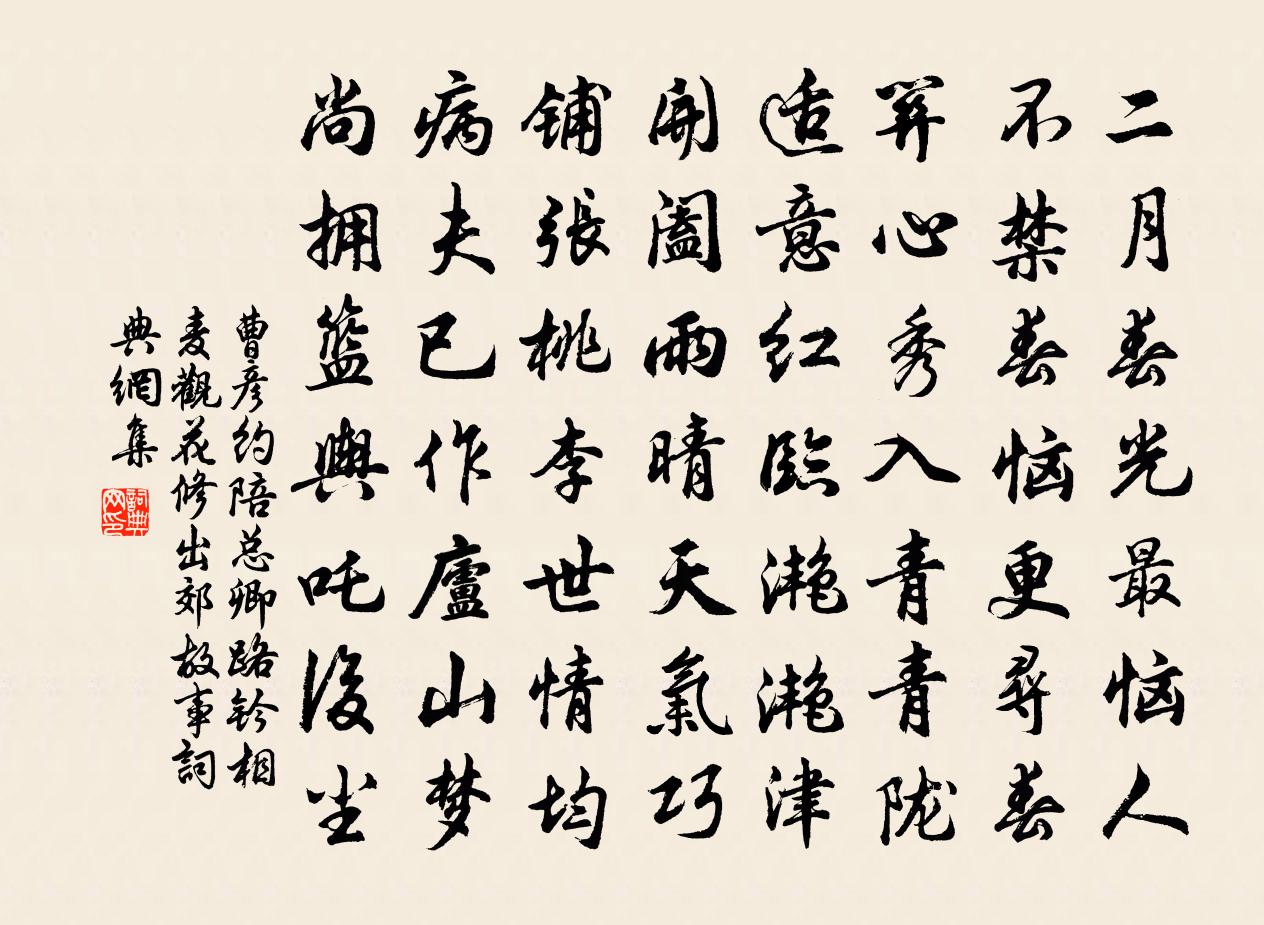 二月春光最恼人
不禁春恼更尋春
筭心秀入青青陇
适意红臨滟滟津
開阖雨晴天氣巧
铺張桃李世情均
病夫已作廬山梦
尚拥籃輿吒後尘
曹彦约陪总卿路钤相
麦觀花修出郊故事詞
典網集
詞典
网印